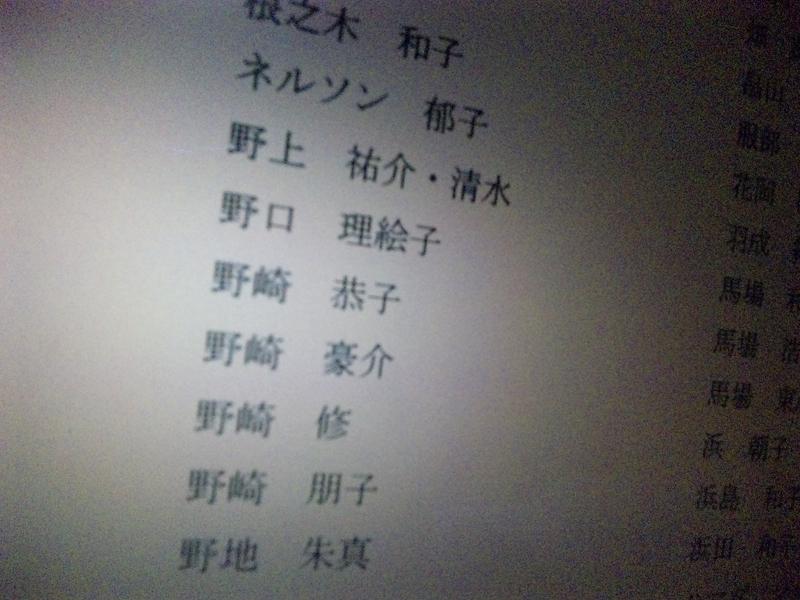 根之木 和子
ネルソン 郁子
野上 祐介・清水
野口 理絵子
野崎 恭子
野崎 豪介
野崎 修
野崎 朋子
野地 朱真
畠山
服部
花岡
羽成
馬場
馬場
馬場
浜 朝子
浜島 和子
浜田